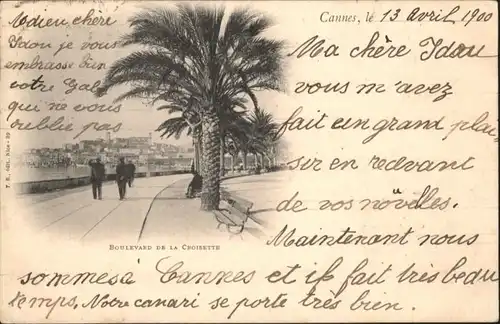 Cannes, le 13 Avril 1900
Ma chère Idou
vous m'avez
fait un grand plai-
sir en
de vos novelles.
Maintenant nous
sommes à Cannes et il fait très beau
temps. Notre canari se porte très bien.
Adieu chère
Idou je vous
embrasse bien
votre
qui ne vous
oublie pas
BOULEVARD DE LA CROISETTE